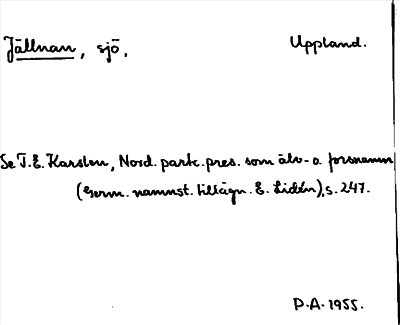 Jällnan, sjö. Uppland.
Se T.E. Karsten, Nord. partc.pres. som älv- o. forsnamn
(Germ. namnst. tillägn. E. Lidén), s. 247.
P.A. 1955.